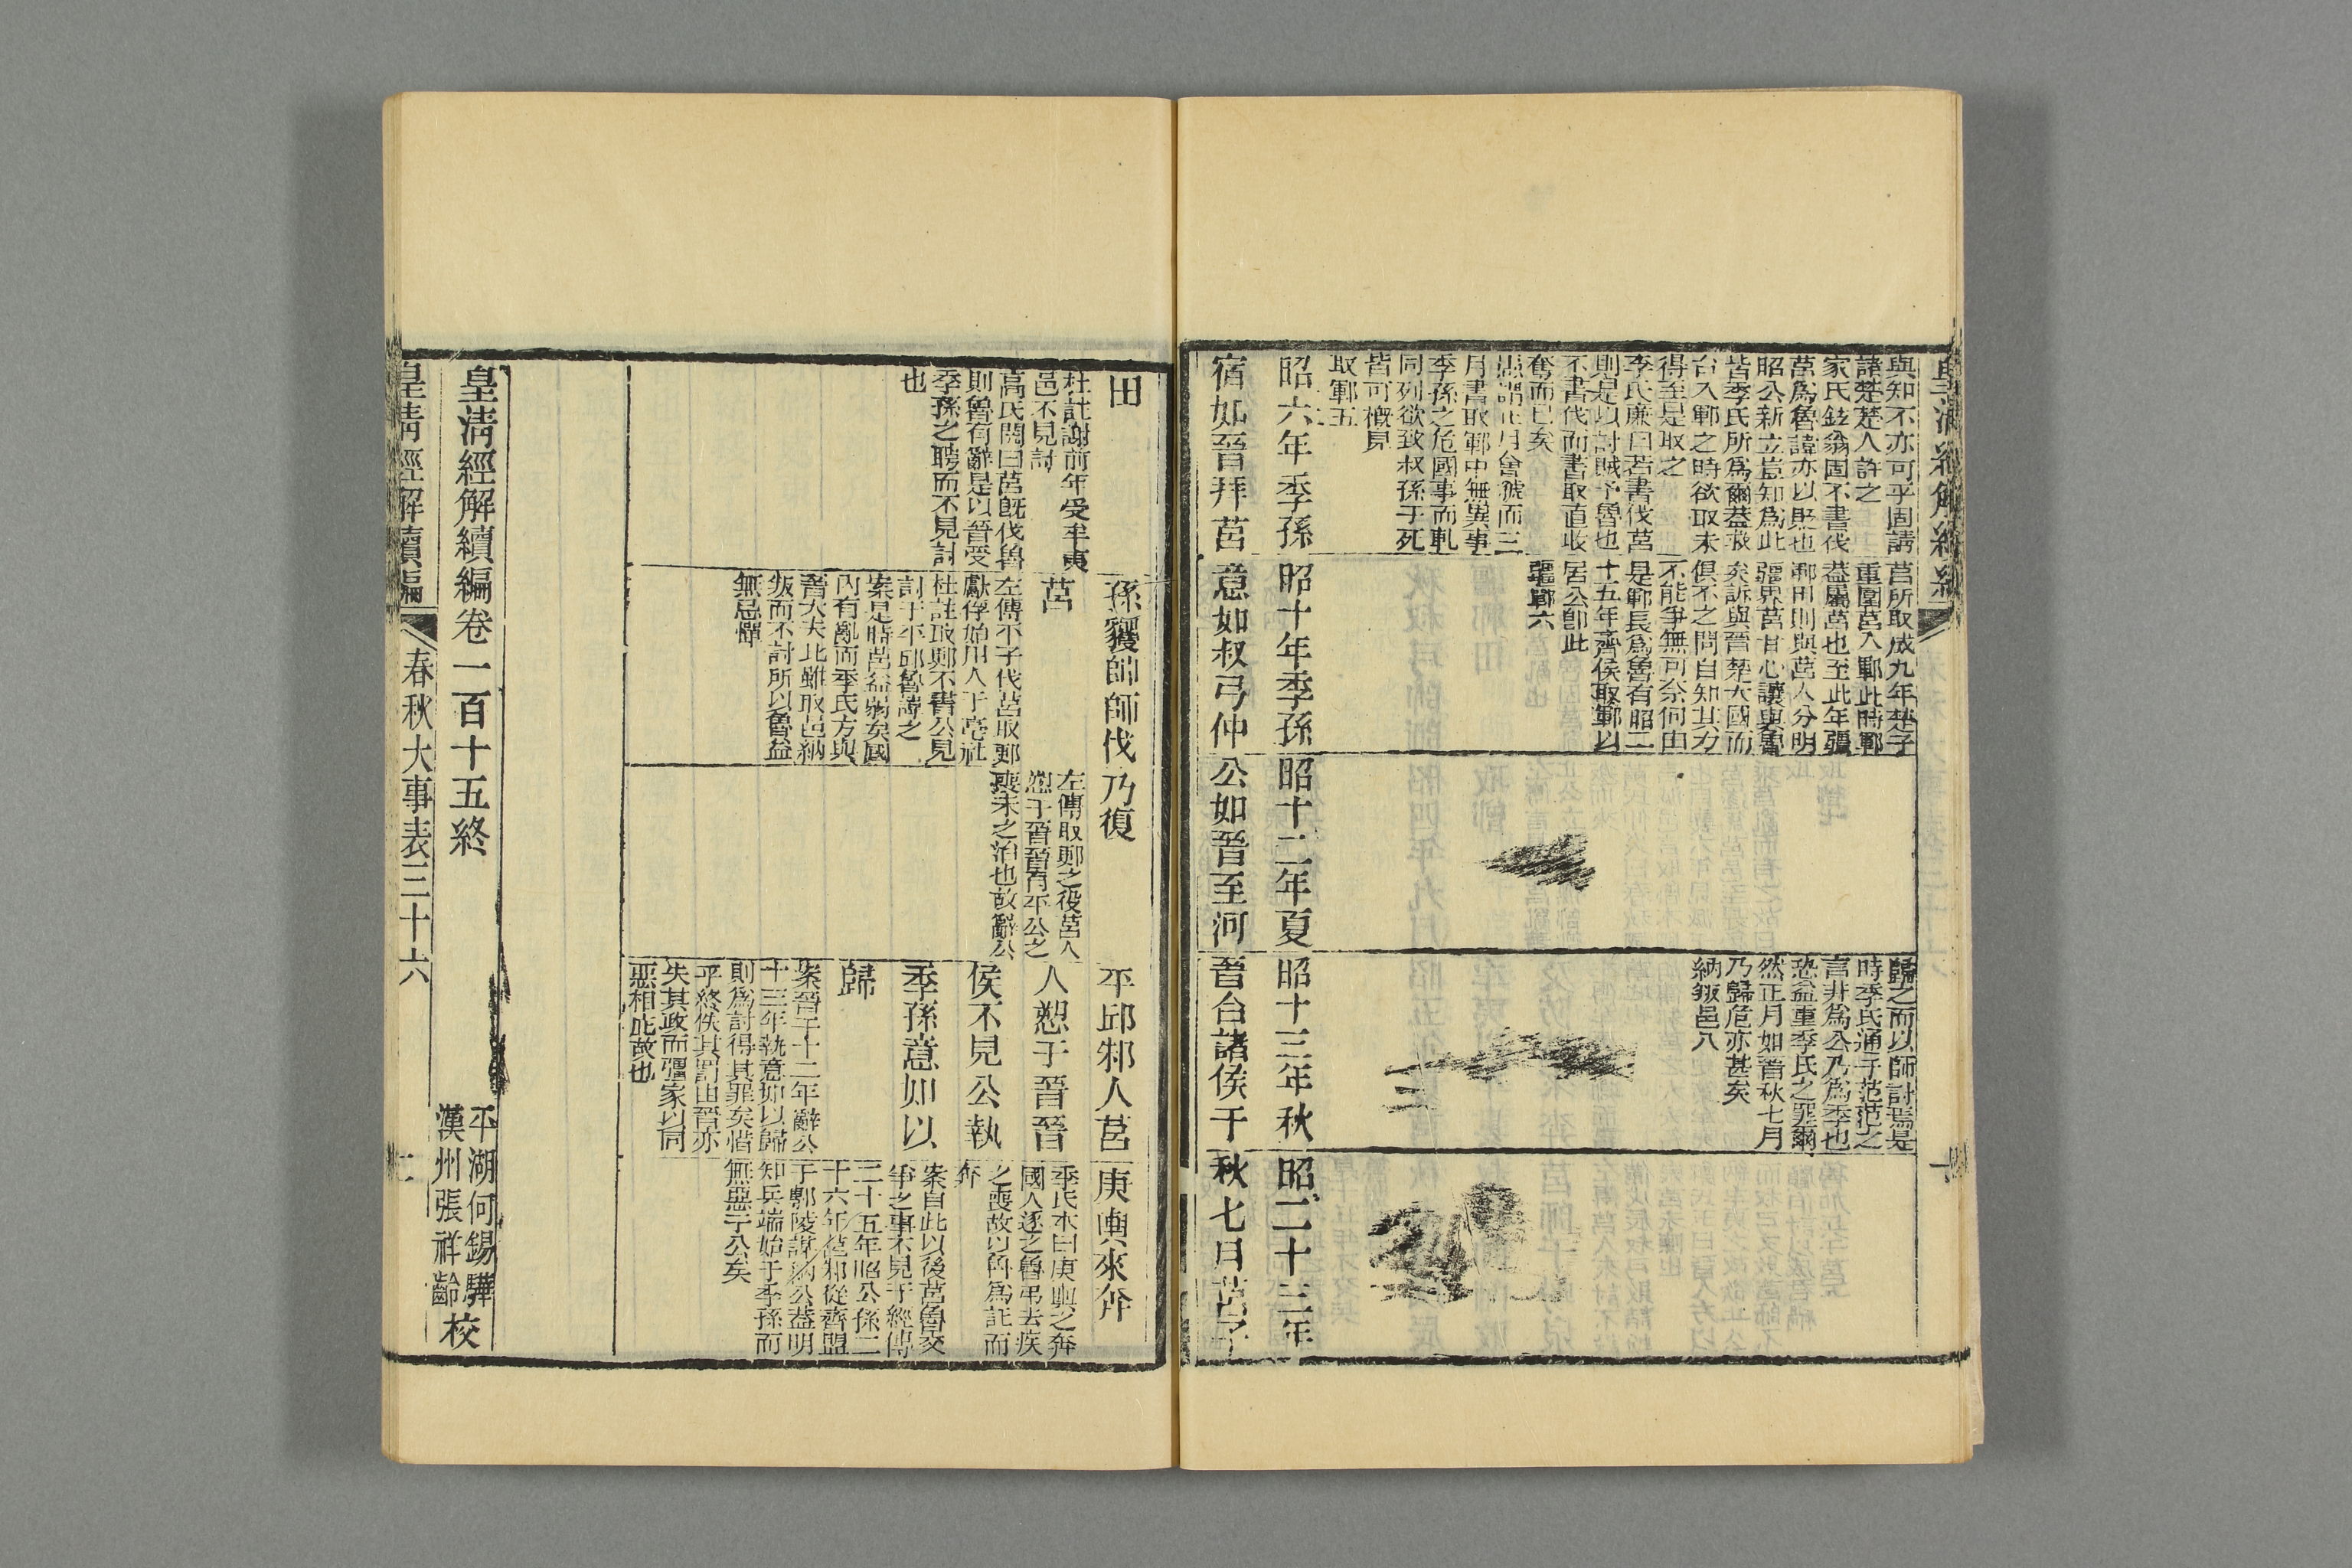 皇清經解續編
與知不亦可乎固請
諸楚楚人許之
家氏鉉翁固不書伐
莒爲魯諱亦以貶也
昭公新立豈知爲此
皆季氏所爲爾葢
台入鄆之時欲取未
得至是取之
季氏廉曰若書伐莒
則是以討賊予魯也
不書伐而書取直收
奪而已矣
正月會虢而三
月書取鄆中無異事
季孫之危國事而軋
同列欲致叔孫于死
皆可概見
取鄆五
昭六年季孫
宿如晉拜莒
田
杜註謝前年受牟夷
邑不見討
高氏閌曰莒旣伐魯
則魯有辭是以晉受
季孫之聘而不見討
也
莒所取成九年楚子
重圍莒入鄆此時鄆
葢屬莒也至此年疆
鄆田則與莒人分明
疆界莒甘心讓與魯
矣訴與晉楚大國而
俱不之問自知其力
不能爭無可奈何由
是鄆長爲魯有昭二
十五年齊侯取鄆以
居公卽此
疆鄆六
昭十年季孫
意如叔弓仲
孫貜帥師伐
莒
左傳平子伐莒取郠
獻俘始用人于亳社
杜註取郠不書公見
討于平邱魯諱之
案是時莒益弱矣國
內有亂而季氏方與
晉大夫比雖取邑納
叛而不討所以魯益
無忌憚
昭十二年夏
公如晉至河
乃復
左傳取郠之役莒人
愬于晉晉有平公之
喪未之治也故辭公
歸之而以師討焉是
時季氏通于范范之
言非爲公乃爲季也
恐益重季氏之罪爾
然正月如晉秋七月
乃歸危亦甚矣
納叛邑八
昭十三年秋
晉合諸侯于
平邱邾人莒
人愬于晉晉
侯不見公執
季孫意如以
歸
案晉于十二年辭公
十三年執意如以歸
則爲討得其罪矣惜
乎終佚其罰由晉亦
失其政而彊家以同
惡相庇故也
昭二十三年
秋七月莒子
庚輿來奔
季氏本曰庚輿之奔
國人逐之魯弔去疾
之喪故以魯爲託而
奔
案自此以後莒魯交
爭之事不見于經傳
二十五年昭公孫二
十六年莒邾從齊盟
于鄟陵謀納公葢明
知兵端始于季孫而
無惡于公矣
皇清經解續編卷一百十五終
平湖何錫驊
漢州張祥齡
校
皇清經解續編
春秋大事表三十六